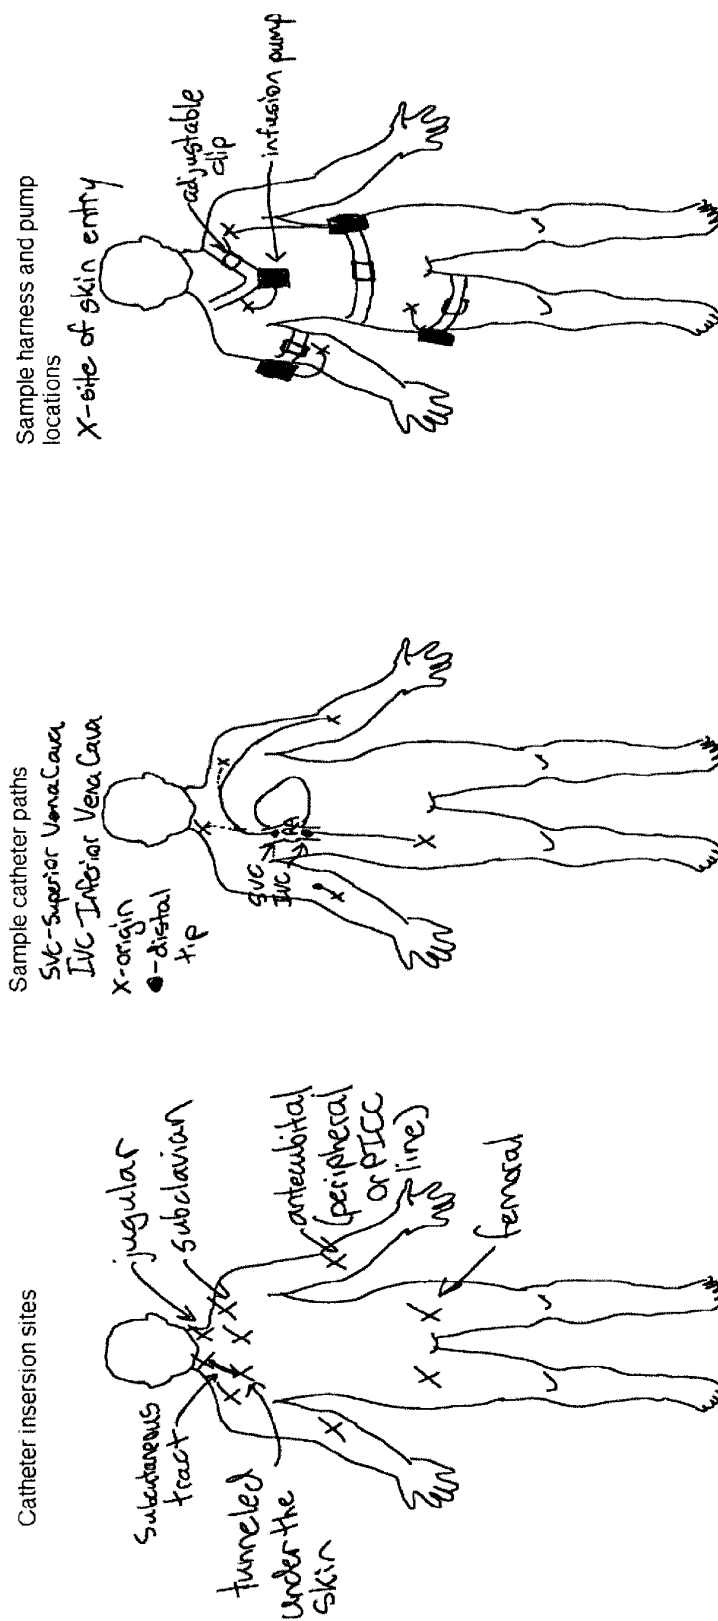 Catheter insersion sites
jugular
subclavian
Subcutaneous
tract
tunneled
under the
skin
antecubital
(peripheral
or PICC
line)
femoral
Sample catheter paths
SVC-Superior Vena Cava
IVC-Inferior Vena Cava
X-origin
●-distal
tip
SVC
IVC
RA
Sample harness and pump
locations
X-site of skin entry
adjustable
clip
infusion pump